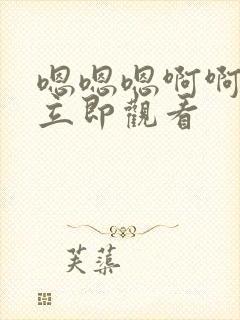 嗯嗯嗯啊啊
立即觀看
芙蕖